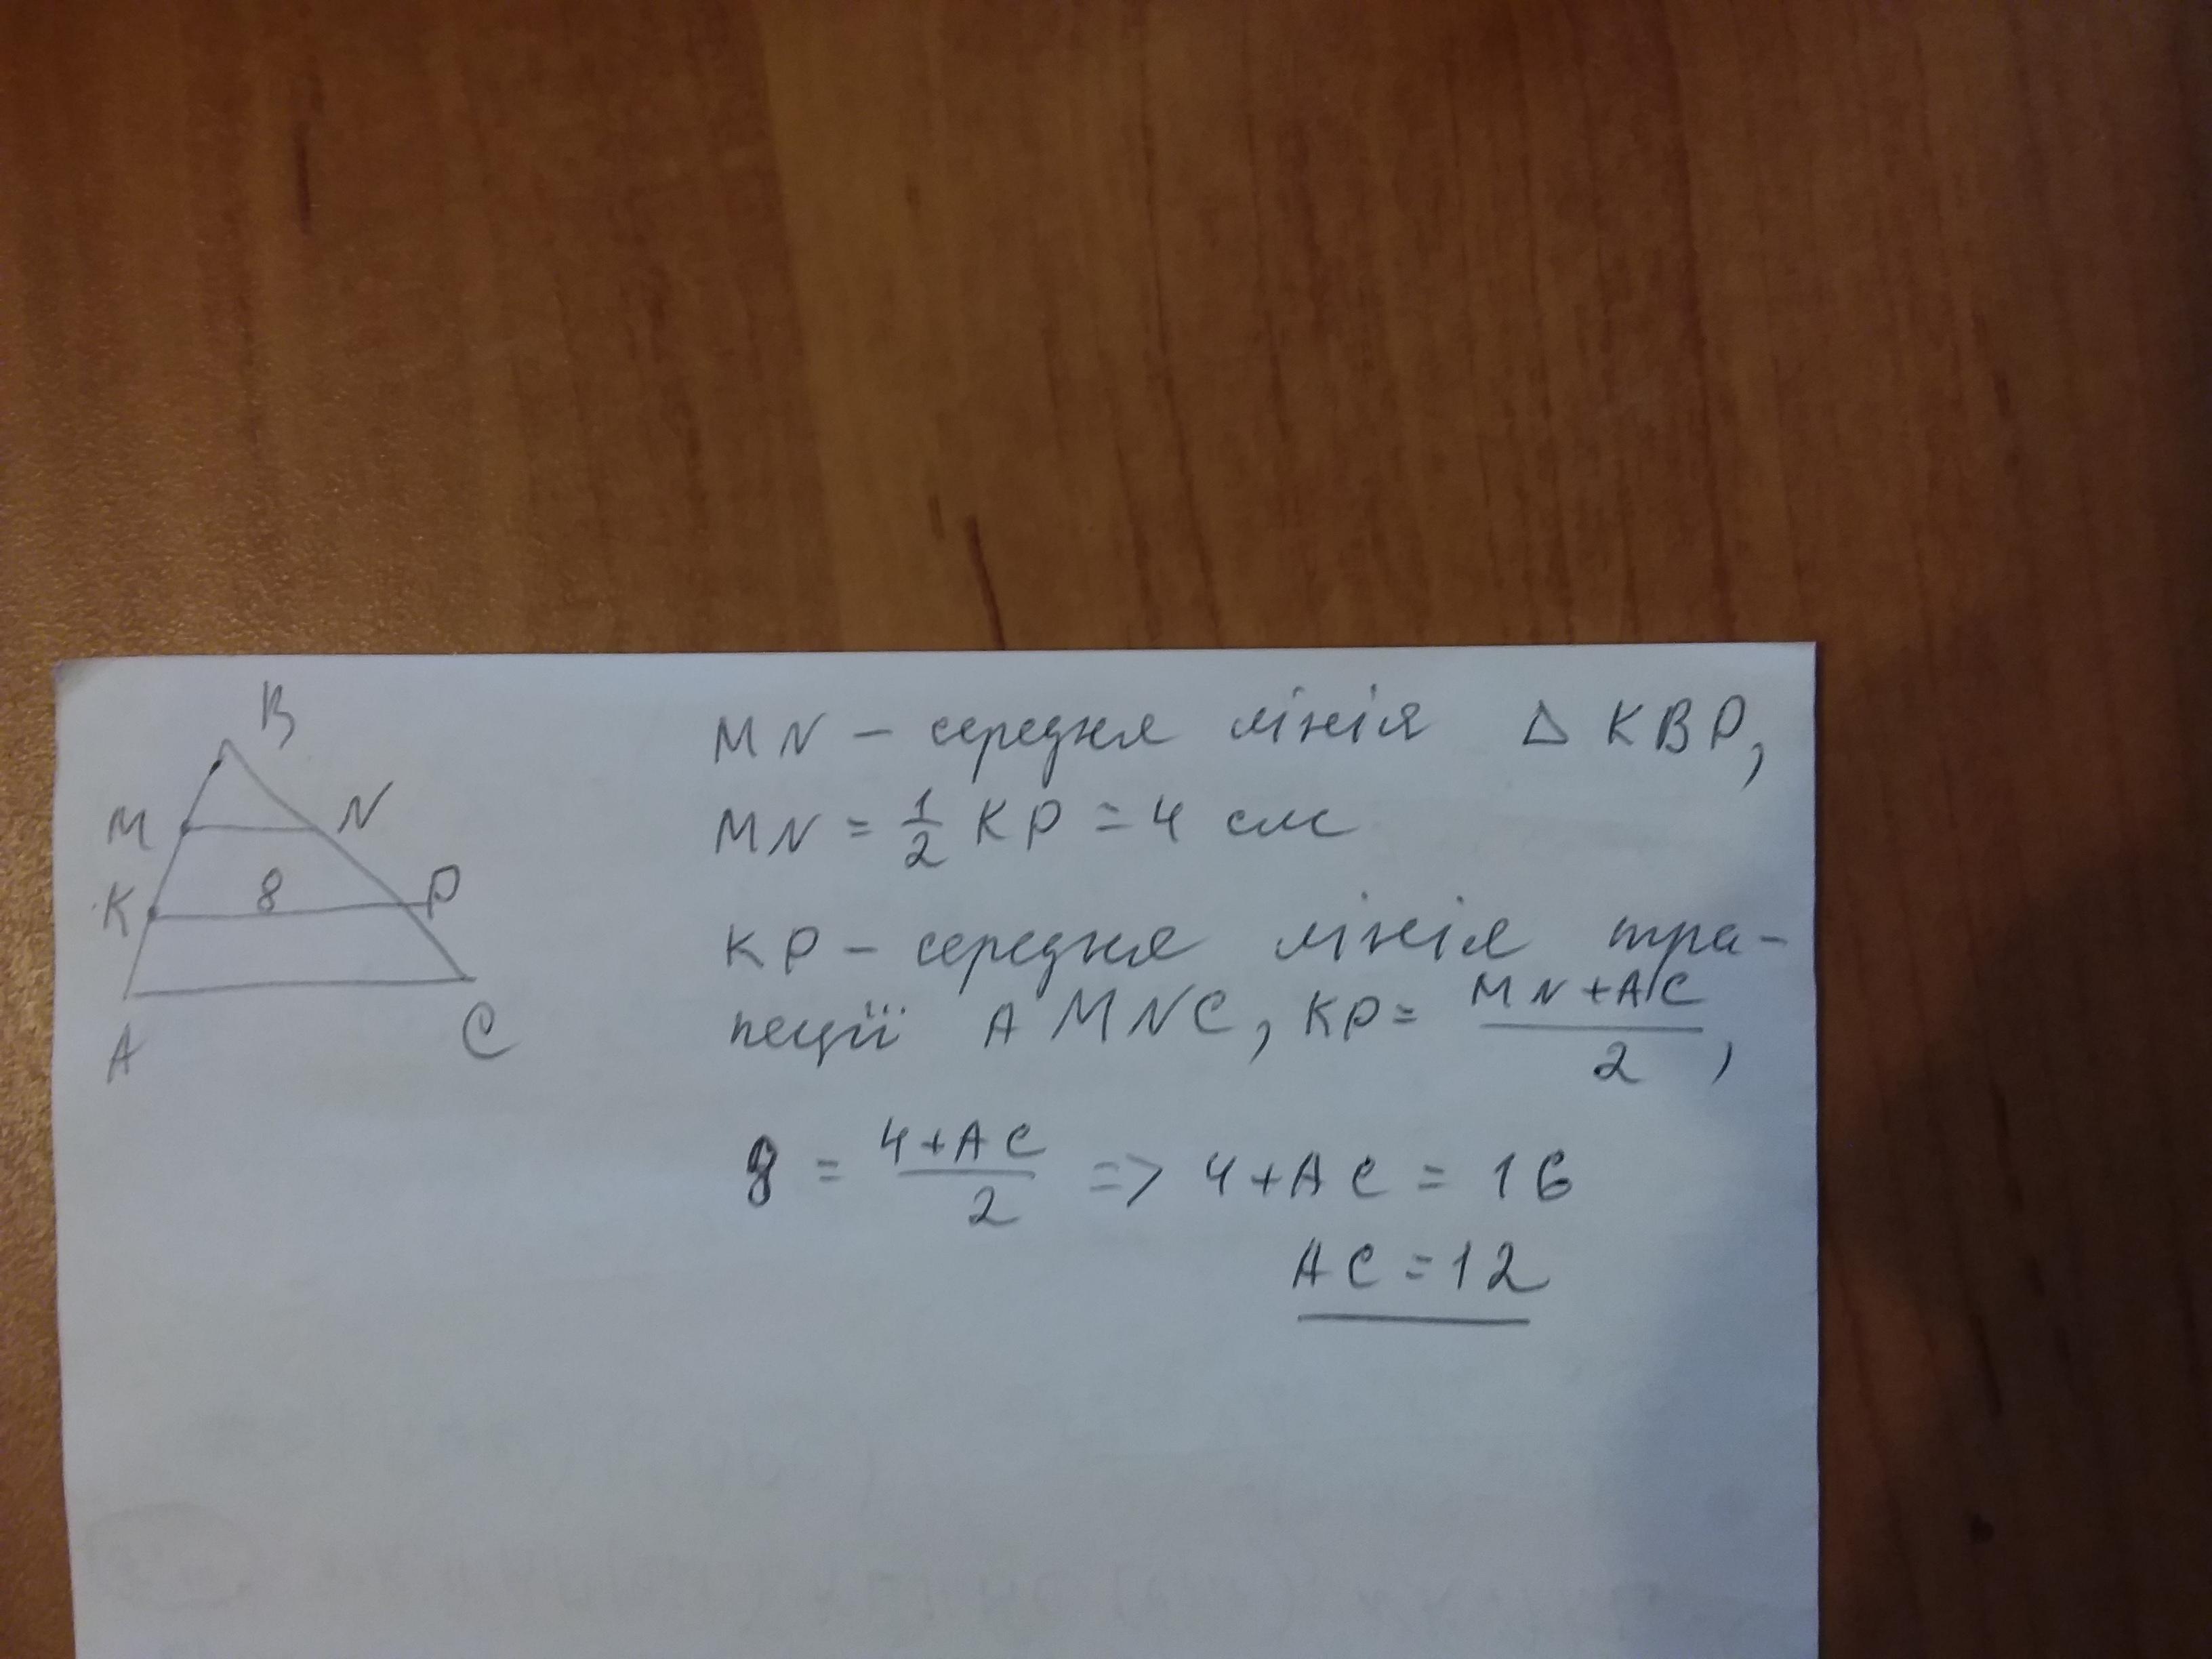 B
M
N
K
8
P
A
C
MN – середня лінія △ KBP,
MN = 1/2 KP = 4 см
KP – середня лінія тра-
пеції AMNC, KP = (MN + AC)/2,
8 = (4+AC)/2 => 4+AC = 16
AC = 12